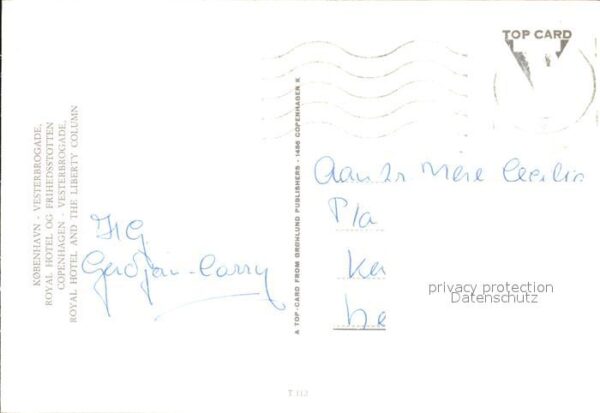 KØBENHAVN - VESTERBROGADE.
ROYAL HOTEL OG FRIHEDSSTOTTEN
COPENHAGEN - VESTERBROGADE.
ROYAL HOTEL AND THE LIBERTY COLUMN
HG
A TOP-CARD FROM GRØNLUND PUBLISHERS - 1486 COPENHAGEN K
TOP CARD
Aan Zr Mère Cecilia
Pla
Ka
he
privacy protection
Datenschutz
T 112